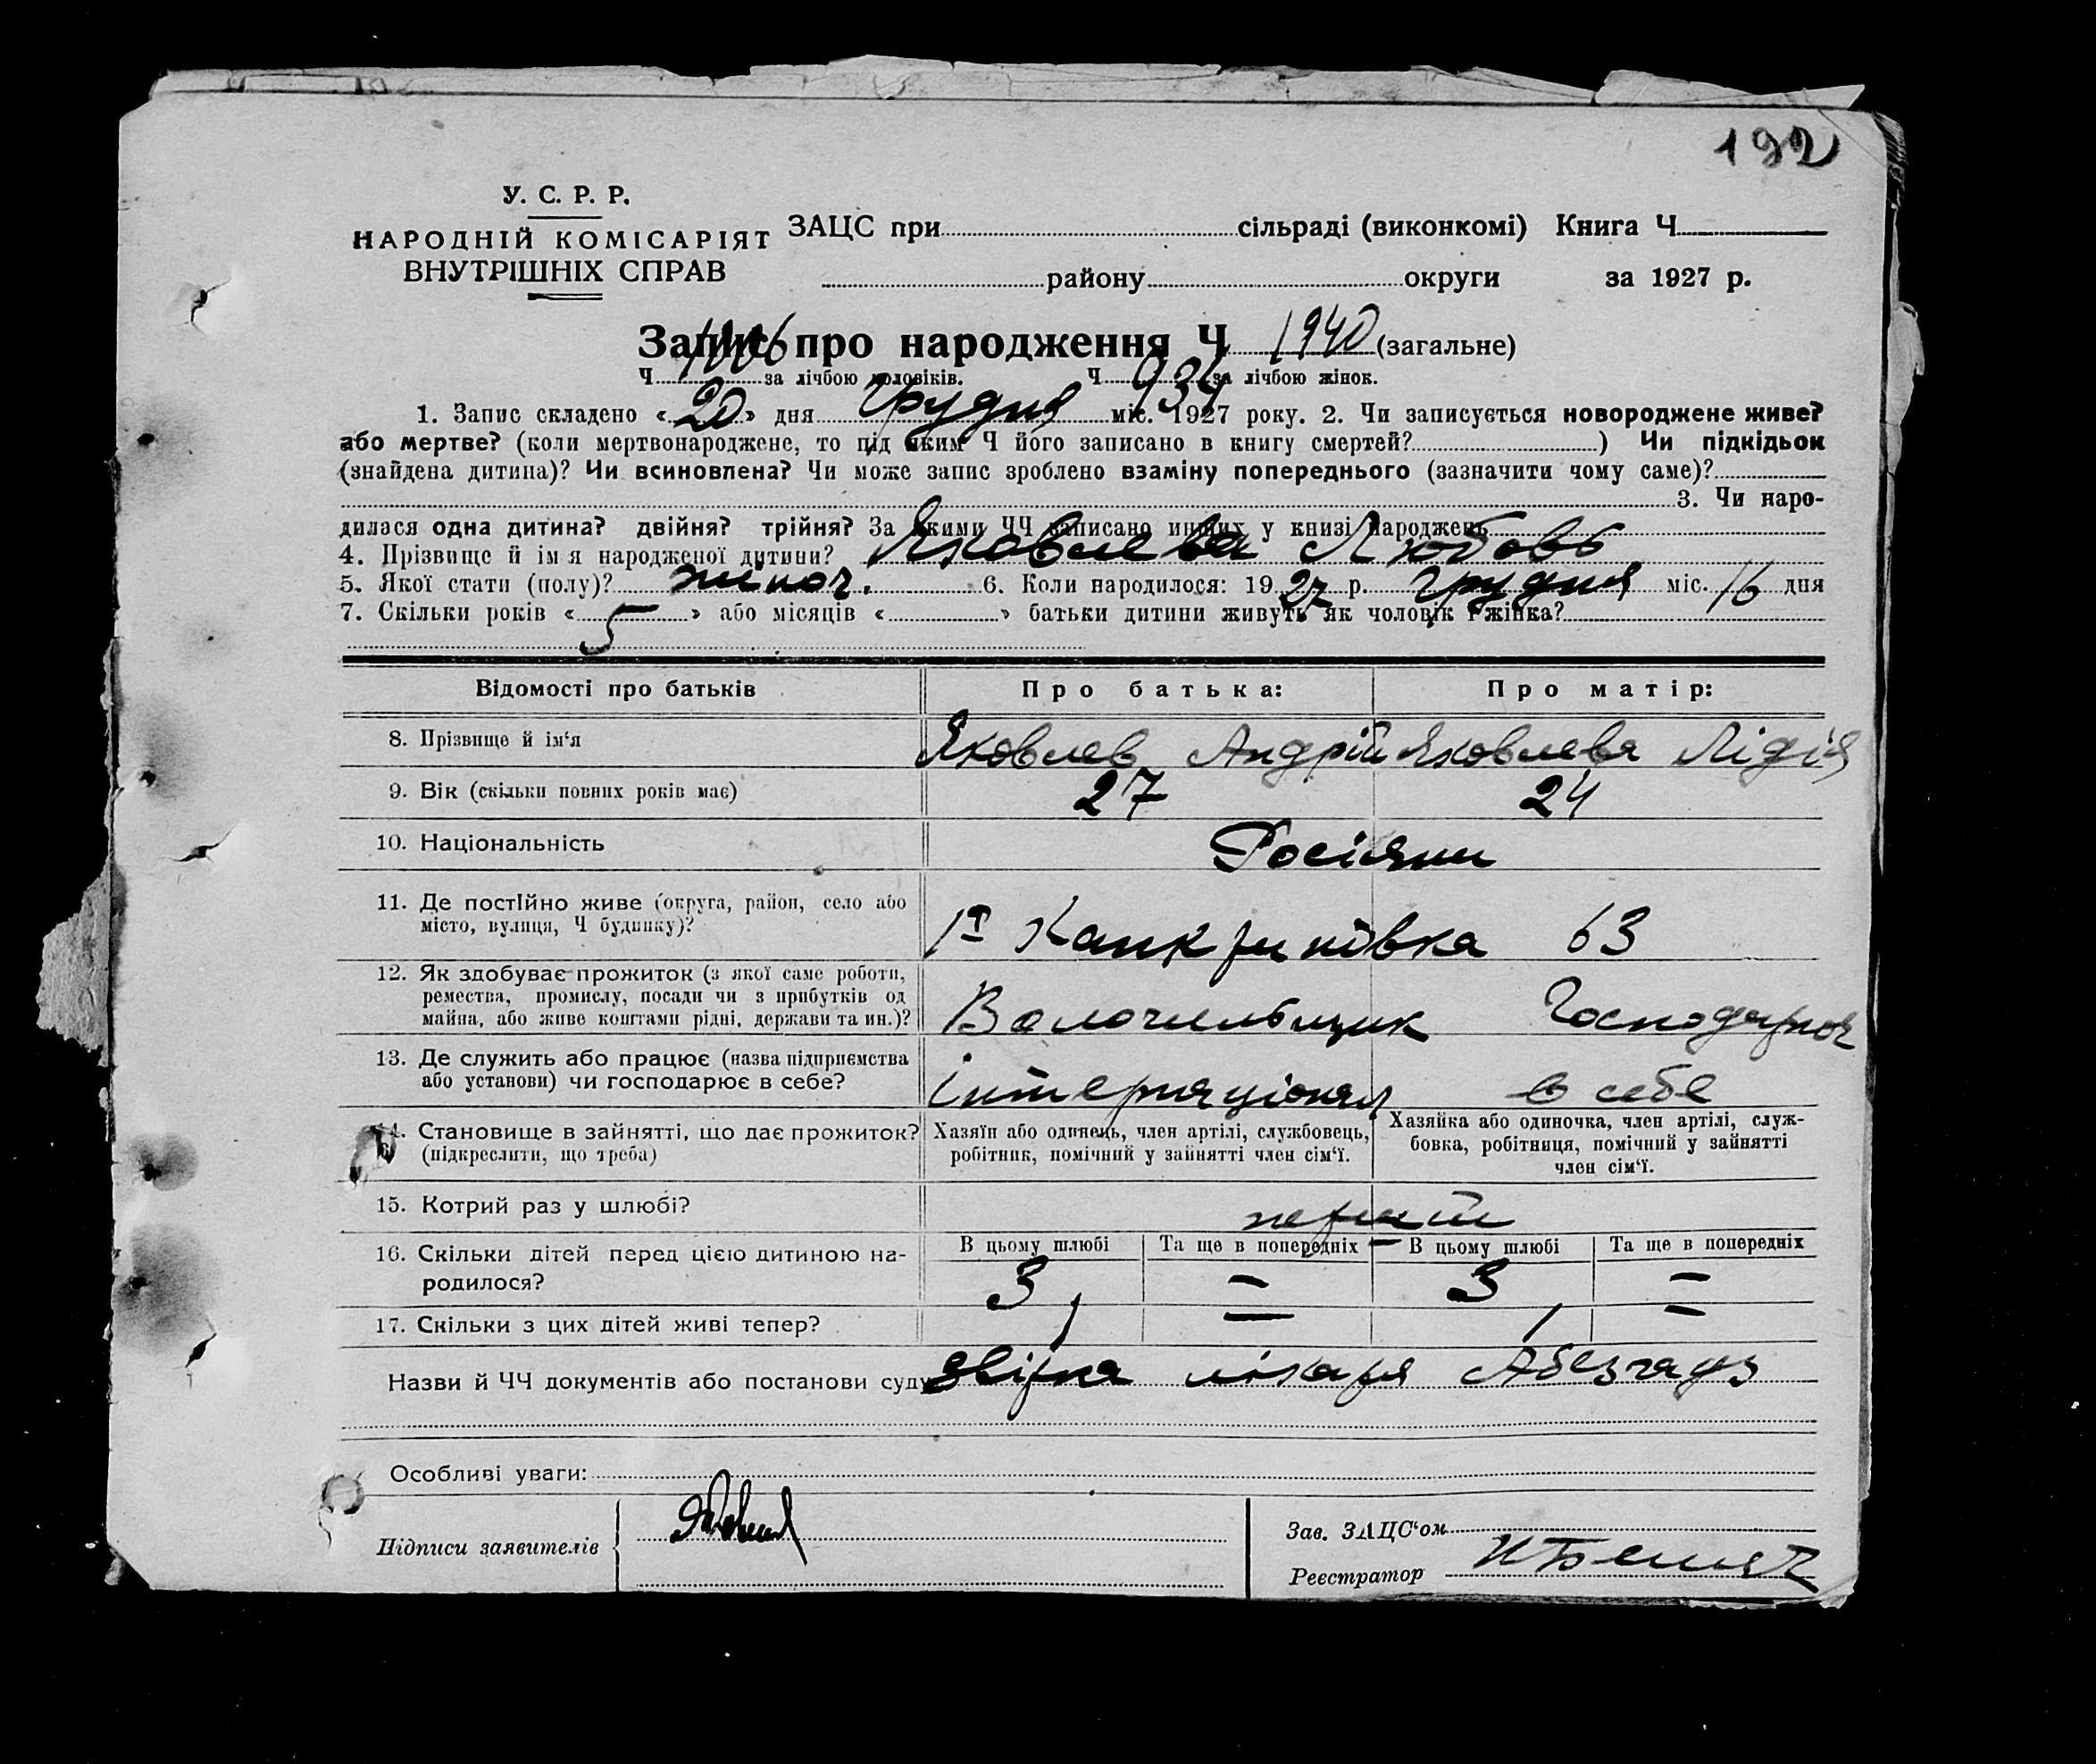 192
У. С. Р. Р.
НАРОДНІЙ КОМІСАРІЯТ
ВНУТРІШНІХ СПРАВ
ЗАЦС при сільраді (виконкомі) Книга Ч
району округи за 1927 р.
Запис про народження Ч 1940 (загальне)
Ч 1006 за лічбою чоловіків. Ч 934 за лічбою жінок.
1. Запис складено «20» дня грудня міс. 1927 року. 2. Чи записується новороджене живе?
або мертве? (коли мертвонароджене, то під яким Ч його записано в книгу смертей?) Чи підкідьок
(знайдена дитина)? Чи всиновлена? Чи може запис зроблено взаміну попереднього (зазначити чому саме)?
3. Чи наро-
дилася одна дитина? двійня? трійня? За якими ЧЧ записано инших у книзі народжень
4. Прізвище й ім я народженої дитини? Яковлева Любовь
5. Якої стати (полу)? жіноч. 6. Коли народилося: 1927 р. грудня міс. 16 дня
7. Скільки років «5» або місяців « » батьки дитини живуть як чоловік і жінка?
Відомості про батьків Про батька: Про матір:
8. Прізвище й ім‘я Яковлев Андрій Яковлева Лідія
9. Вік (скільки повних років має) 27 24
10. Національність Росіяни
11. Де постійно живе (округа, район, село або
місто, вулиця, Ч будинку)? Канкринівка 63
12. Як здобуває прожиток (з якої саме роботи,
ремества, промислу, посади чи з прибутків од
майна, або живе коштами рідні, держави та ин.)? Волочильщик Господарюч
13. Де служить або працює (назва підприємства
або установи) чи господарює в себе? інтернаціонал в себе
14. Становище в зайнятті, що дає прожиток?
(підкреслити, що треба)
Хазяїн або одинець, член артілі, службовець,
робітник, помічний у зайнятті член сім‘ї.
Хазяйка або одиночка, член артілі, служ-
бовка, робітниця, помічний у зайнятті
член сім‘ї.
15. Котрий раз у шлюбі? перший
16. Скільки дітей перед цією дитиною на-
родилося?
В цьому шлюбі Та ще в попередніх В цьому шлюбі Та ще в попередніх
3 – 3 –
17. Скільки з цих дітей живі тепер? 1 – 1 –
Назви й ЧЧ документів або постанови суду лікаря
Особливі уваги:
Підписи заявителів
Зав. ЗАЦС‘ом
Реєстратор